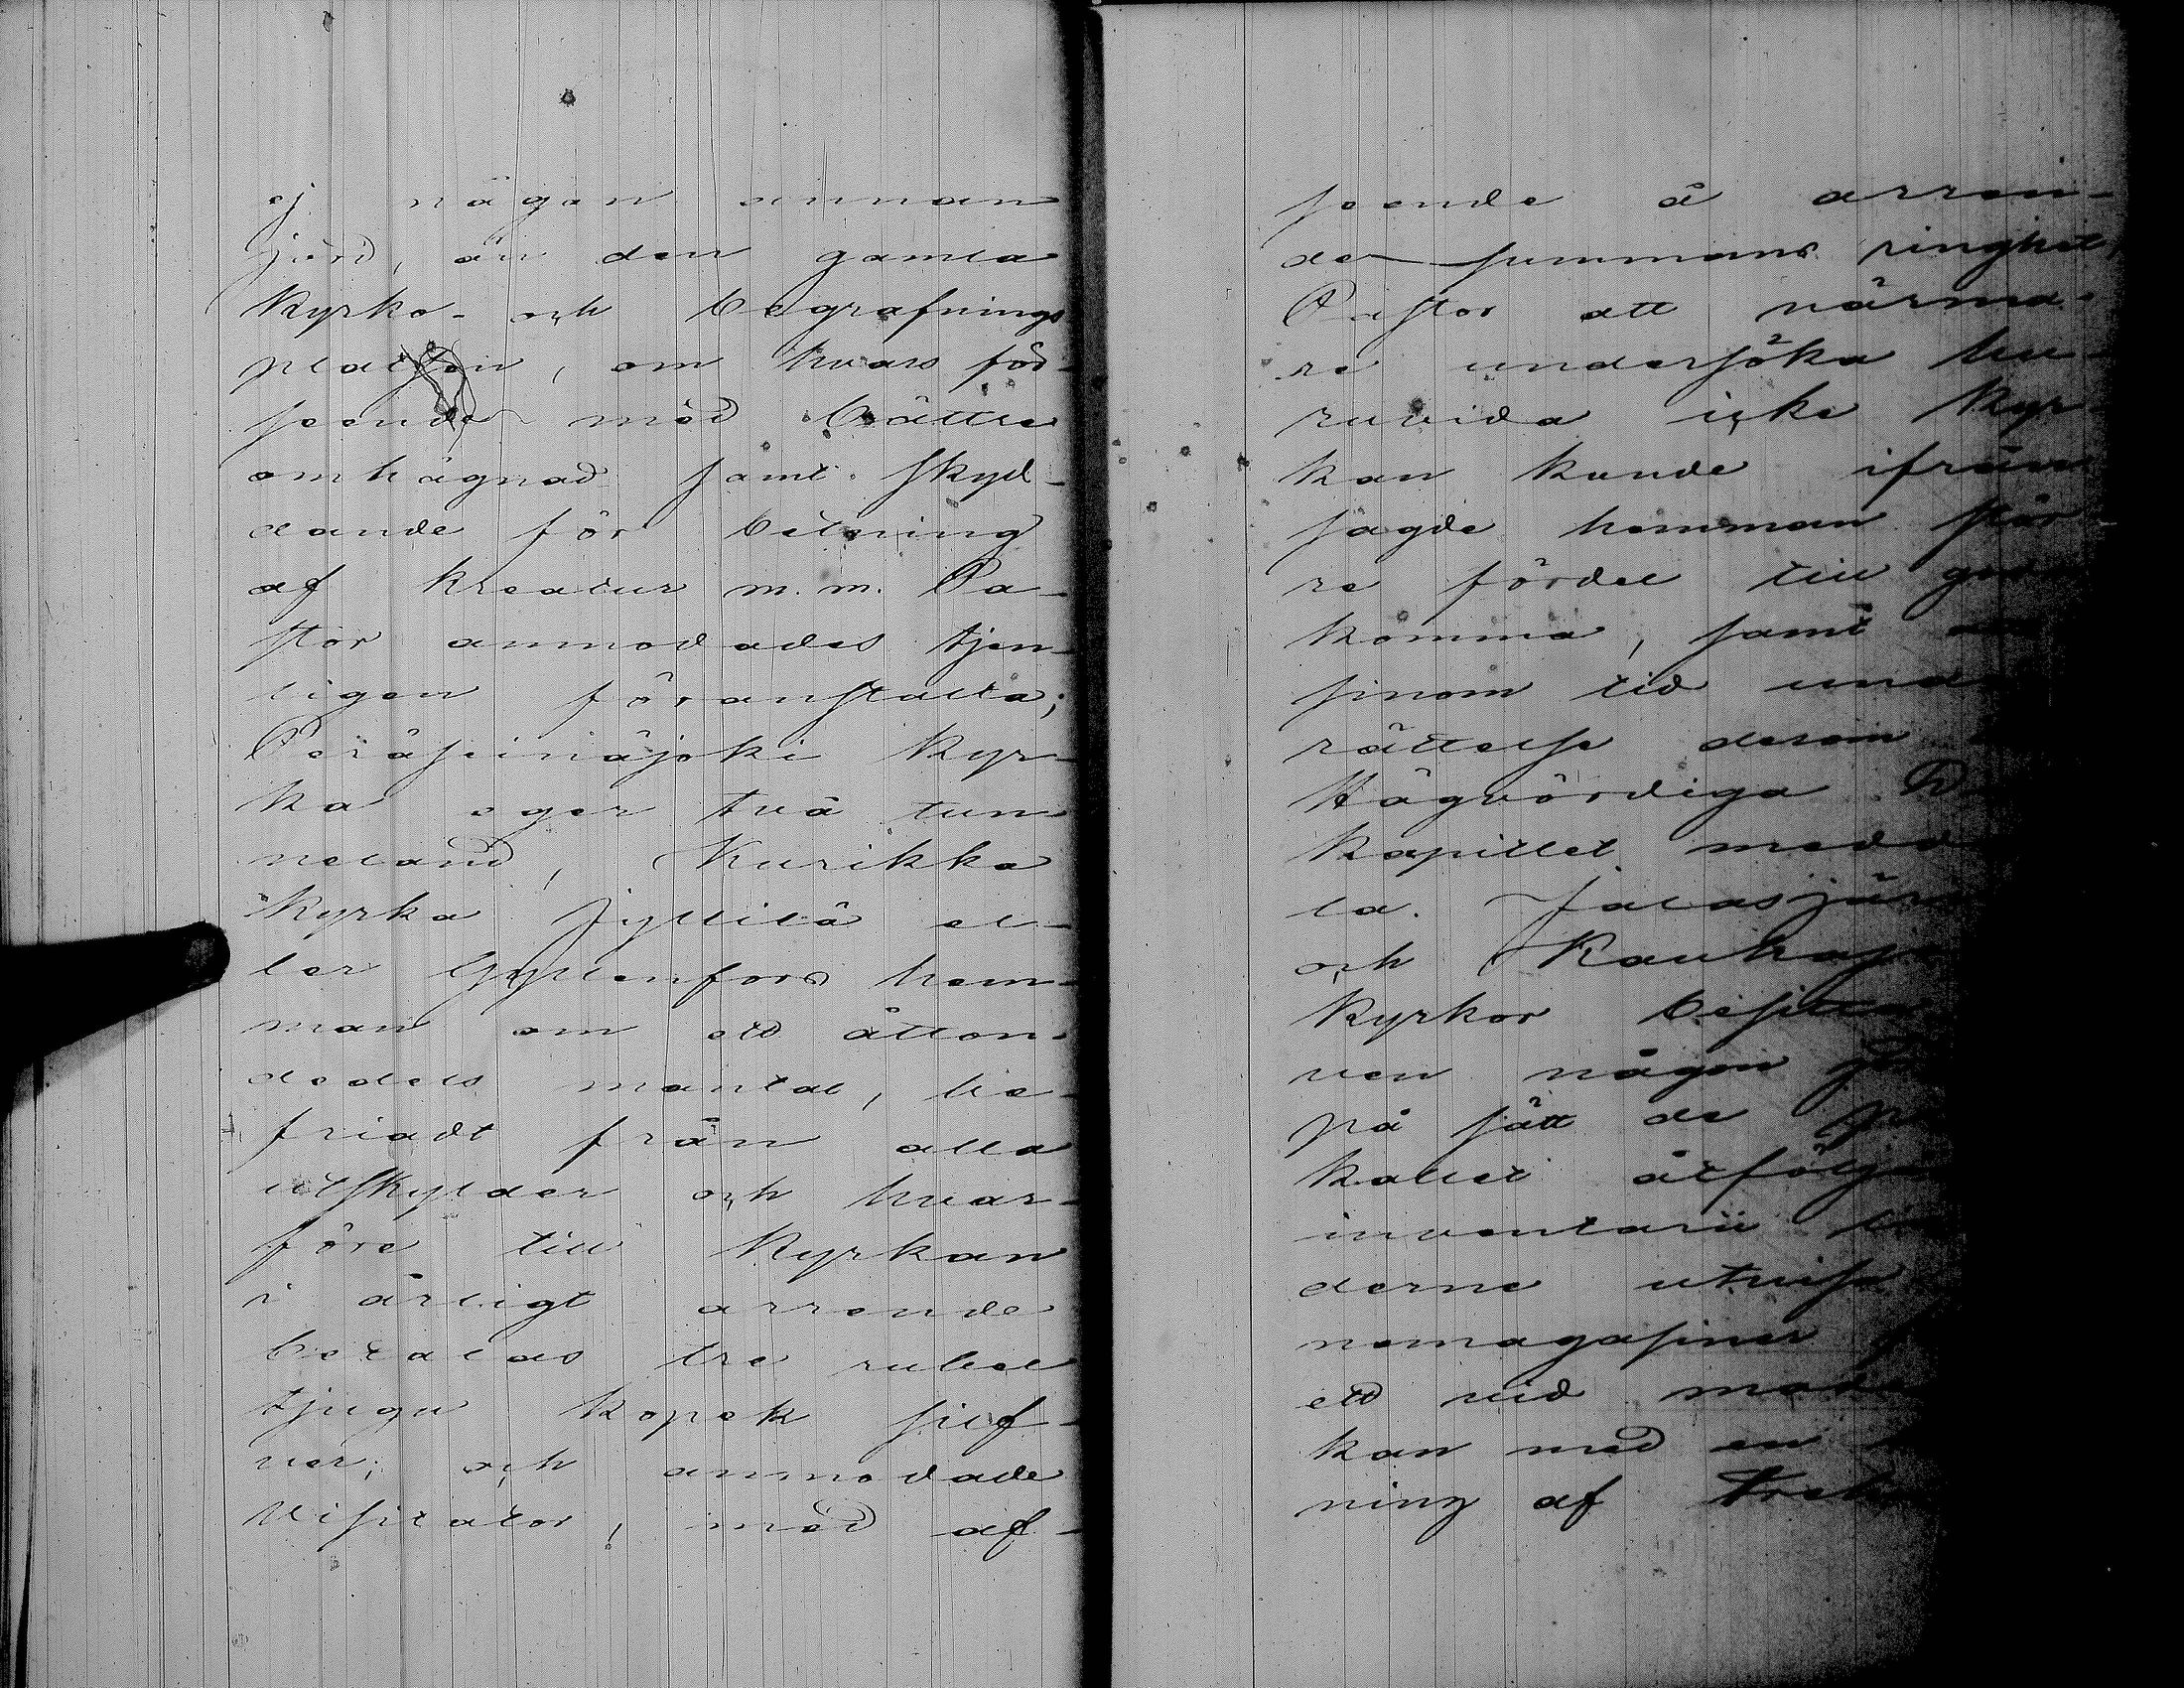 ej någon annan
jord, än den gamla
Kyrko- och begrafnings
platsen, om hvars för-
seende med bättre
omhägnad samt skyd-
dande för betning
af kreatur m. m. Pa-
stor anmodades tjen-
ligen föranstalta;
Peräseinäjoki Kyr-
ka eger två tun-
neland, Kurikka
Kyrka Jyllilä el-
ler Gyllenfors hem-
man om ett åtton-
dedels mantal, be-
friadt från alla
utskylder och hvar-
före till Kyrkan
i årligt arrende
betalas tre rubel
tjugu kopek silf-
ver; och anmodade
Visitator, med af-
seende å arren-
de summans ringhet,
Pastor att närma-
re undersöka hu-
ruvida icke Kyr
kan kunde ifrån
sagde hemman stör
re fördel till
komma, samt
sinom tid und
rättelse derom
Högvördiga
kapitlet medd
la. Jalasjär
och Kauhaj
Kyrkor besitta
ven någon
på sätt de
kallet åtfölj
inventarii
derne utvisa
nemagasiner
ett vid
kan med en
ning af